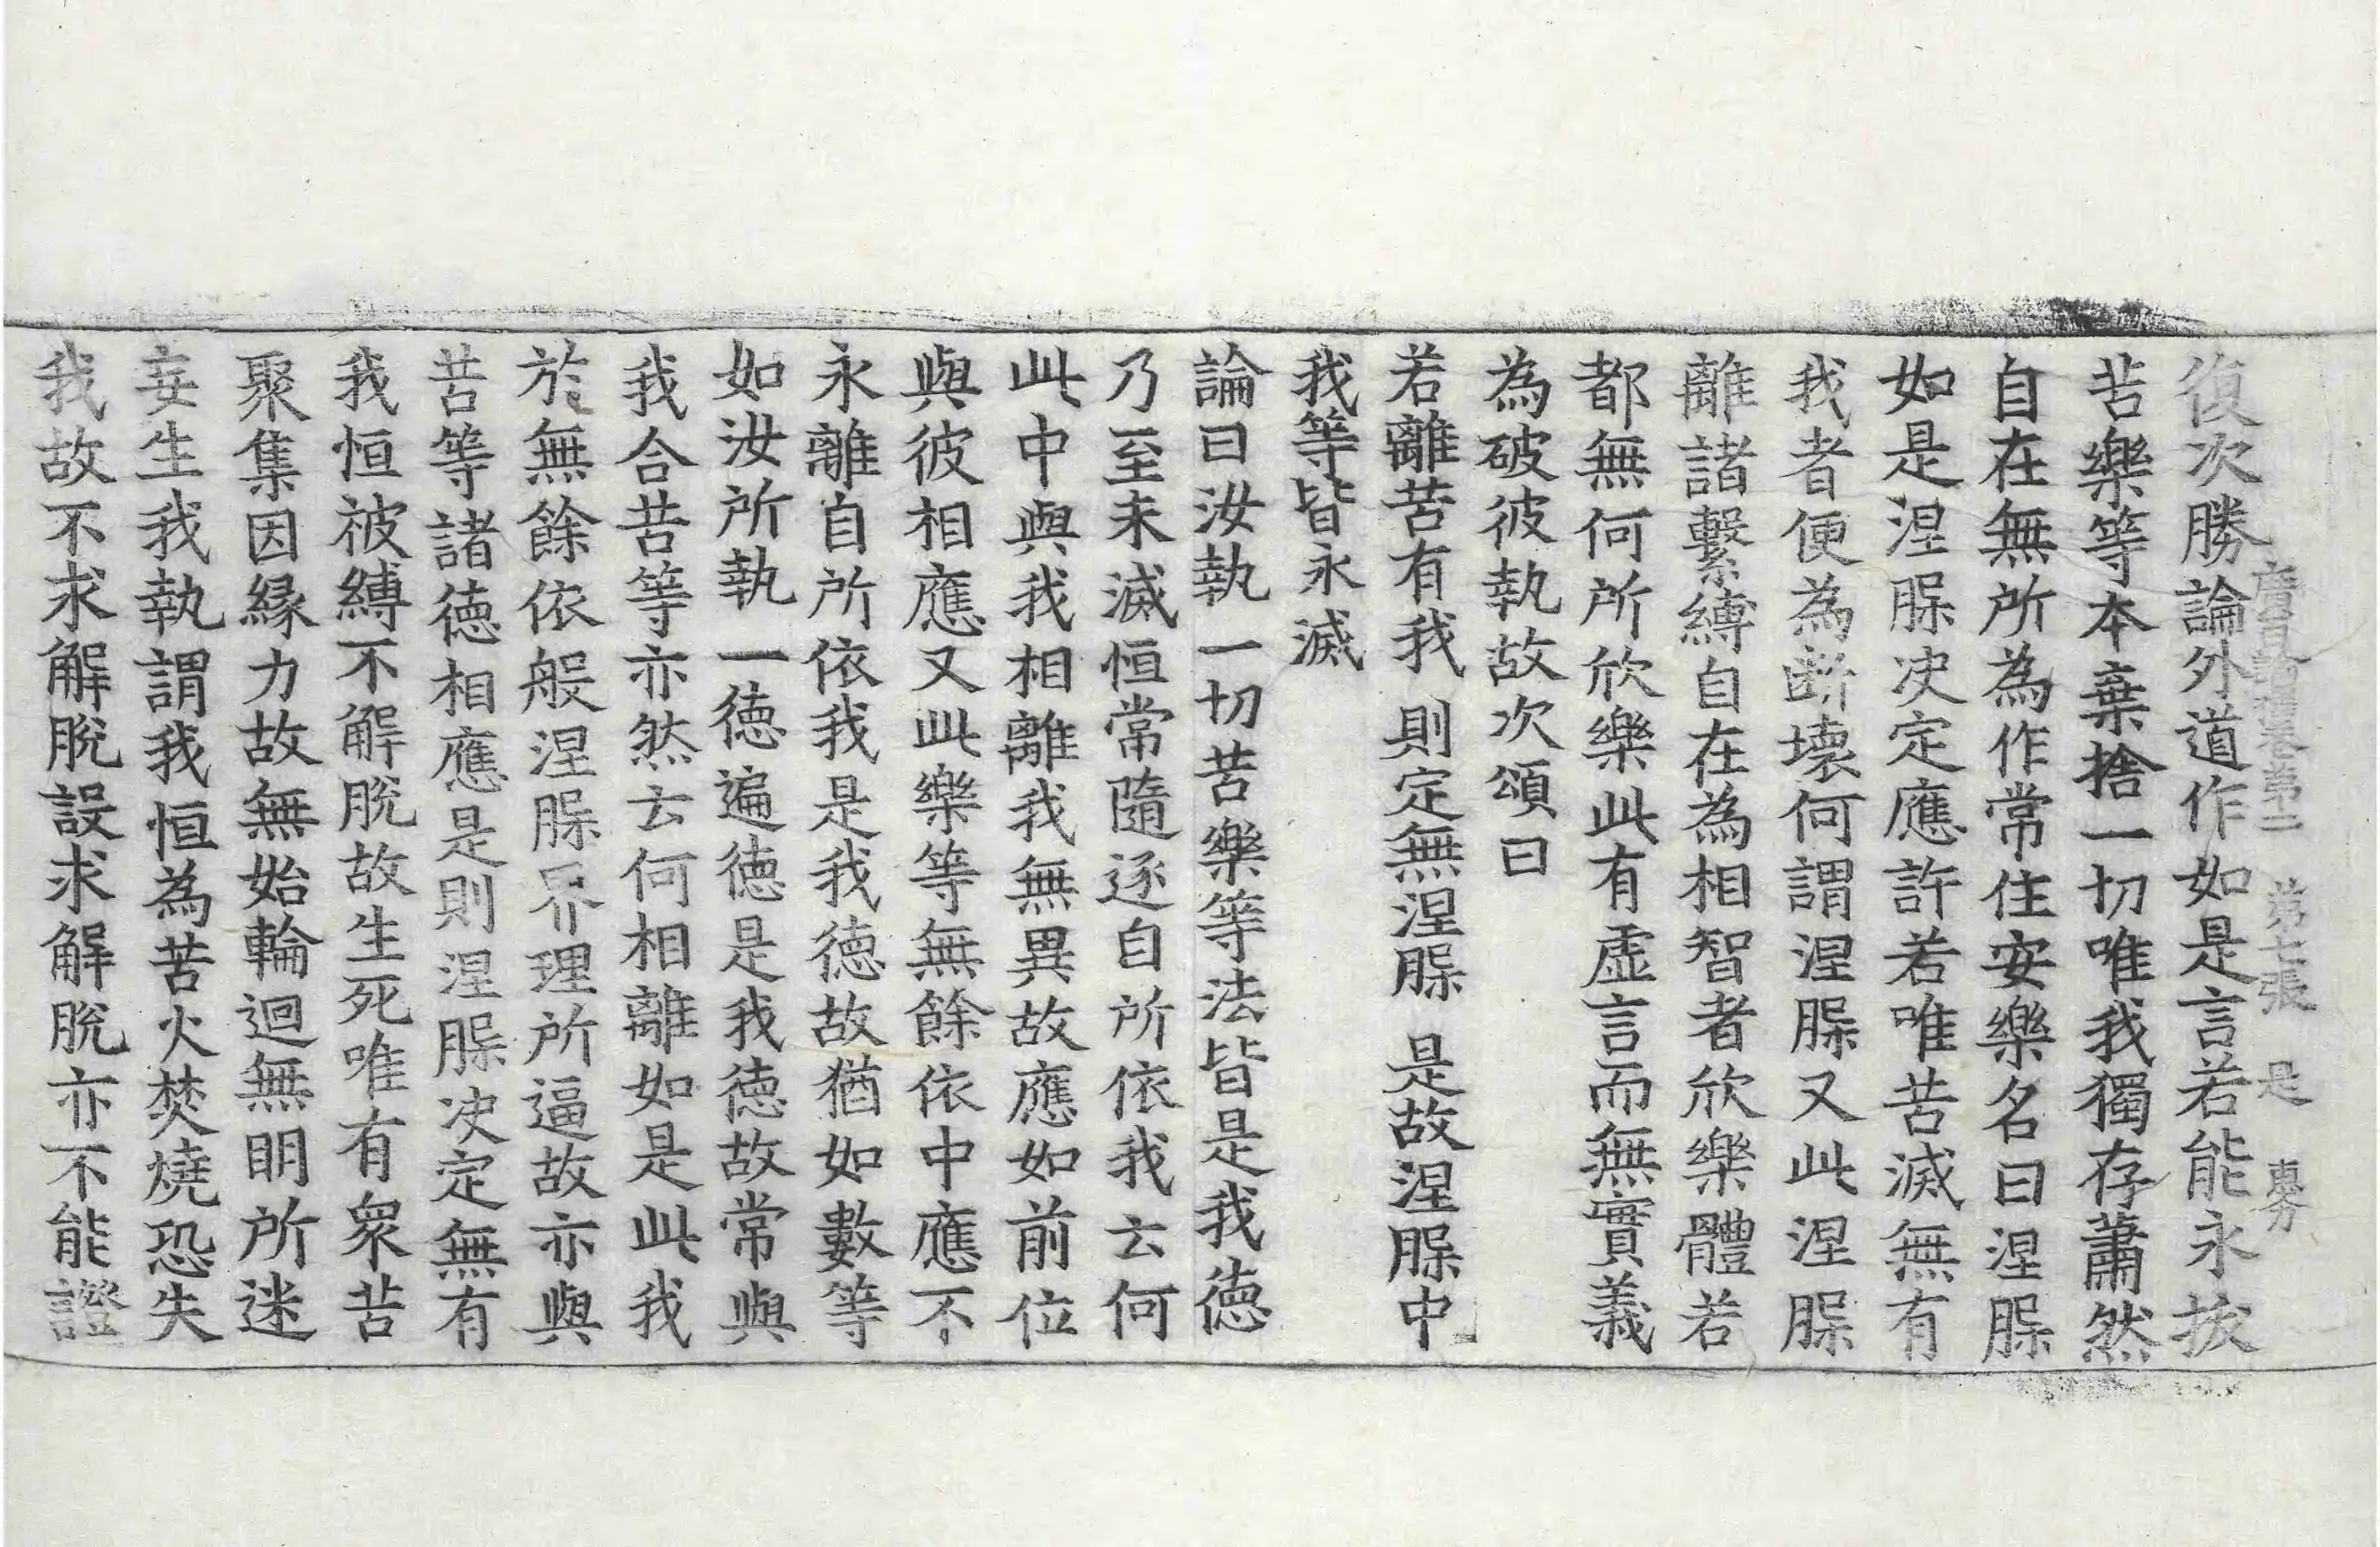 廣百論釋卷第二 第七張 是
復次勝論外道作如是言若能永拔
苦樂等本棄捨一切唯我獨存蕭然
自在無所為作常住安樂名曰涅槃
如是涅槃決定應許若唯苦滅無有
我者便為斷壞何謂涅槃又此涅槃
離諸繫縛自在為相智者欣樂體若
都無何所欣樂此有虛言而無實義
為破彼執故次頌曰
若離苦有我 則定無涅槃 是故涅槃中
我等皆永滅
論曰汝執一切苦樂等法皆是我德
乃至未滅恒常隨逐自所依我云何
此中與我相離我無異故應如前位
與彼相應又此樂等無餘依中應不
永離自所依我是我德故猶如數等
如汝所執一德遍德是我德故常與
我合苦等亦然云何相離如是此我
於無餘依般涅槃界理所逼故亦與
苦等諸德相應是則涅槃決定無有
我恒被縛不解脫故生死唯有衆苦
聚集因緣力故無始輪迴無明所迷
妄生我執謂我恒為苦火焚燒恐失
我故不求解脫設求解脫亦不能證